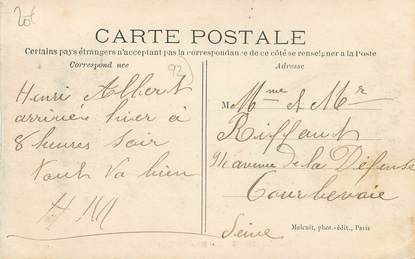 20f
CARTE POSTALE
Certains pays étrangers n'acceptant pas la correspondance de ce côté se renseigner à la Poste
Correspond nce
Adresse
92
Henri Albert
arrivés hier à
8 heures soir
tout va bien
H M
M Mme et Mr
Riffaut
94 avenue de la Défense
Courbevoie
Seine
Malcuit, phot.-édit., Paris